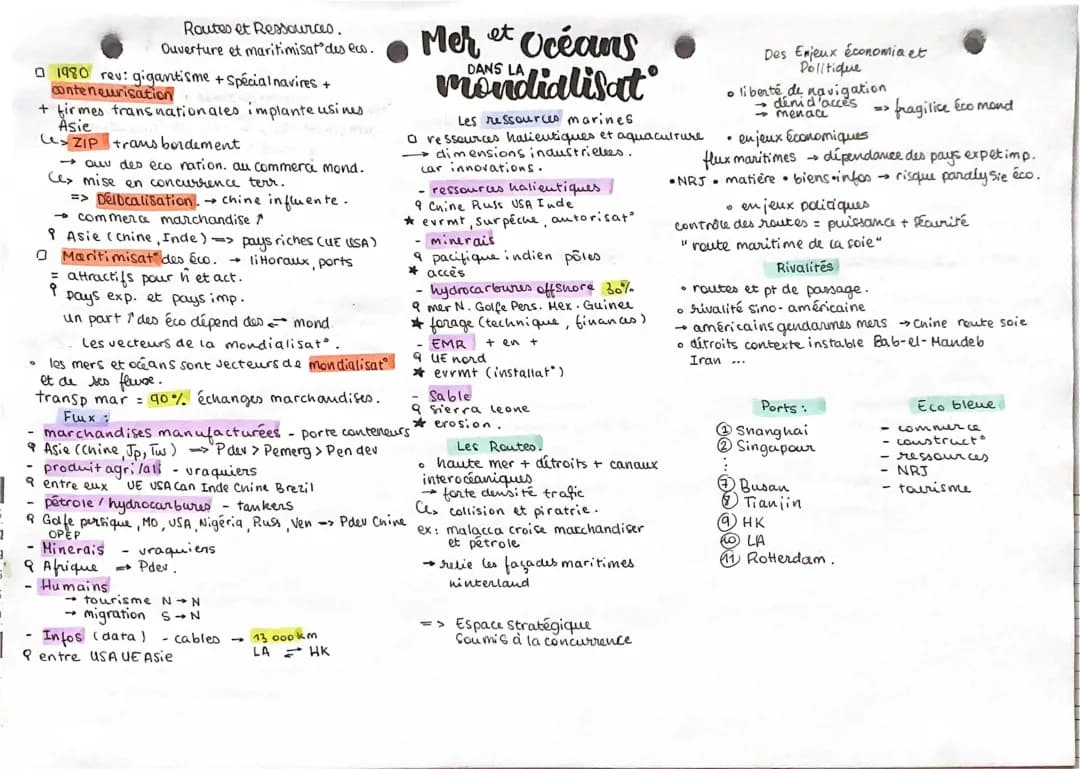 Routes et Ressources.
Ouverture et maritimisat° des eco.
1980 rev: gigantisme + spécial navires +
conteneurisation
+ firmes transnationales implante usines
Asie
ZIP transbordement
→ ouv des eco nation. au commerce mond.
mise en concurrence terr.
=> Délocalisation. → chine influente.
→ commerce marchandise ↑
Asie (chine, Inde) => pays riches (UE USA)
Maritimisat° des éco. → littoraux, ports
= attractifs pour h et act.
pays exp. et pays imp.
un part ↑ des éco dépend des ⇄ mond
Les vecteurs de la mondialisat°.
les mers et océans sont vecteurs de mondialisat°
et de ses fluxe.
transp mar = 90% échanges marchandises.
Flux :
- marchandises manufacturées - porte conteneurs
Asie (Chine, Jp, Tw) => Pdev > Pemerg > Pen dev
- produit agri/ali - vraquiers
entre eux UE USA Can Inde Chine Brezil
- pétrole / hydrocarbures - tankers
Golfe persique, MO, USA, Nigéria, Russ, Ven => Pdev Chine
OPEP
- Minerais - vraquiers
Afrique => Pdev.
- Humains
→ tourisme N → N
→ migration S → N
- Infos (data) - cables → 13 000 km
LA ⇄ HK
entre USA UE Asie
Mer et Océans
DANS LA
mondialisat°
Les ressources marines
ressources halieutiques et aquaculture
→ dimensions industrielles.
car innovations.
- ressources halieutiques
Chine Russ USA Inde
★ evrmt, surpêche, autorisat°
- minerais
pacifique indien pôles
★ accès
- hydrocarbures offshore 30%
mer N. Golfe Pers. Mex. Guinee
★ forage (technique, finances)
- EMR + en +
UE nord
★ evrmt (installat°)
- Sable
Sierra leone
★ erosion.
Les Routes.
haute mer + détroits + canaux
interocéaniques
→ forte densité trafic
collision et piratrie.
ex: malacca croise marchandiser
et pétrole
→ relie les façades maritimes
hinterland
=> Espace stratégique
soumis à la concurrence
Des Enjeux économia et
Politique
liberté de navigation
→ déni d'accès
→ menace => fragilice éco mond
• enjeux économiques
flux maritimes → dépendance des pays exp et imp.
• NRJ • matière • biens • infos → risque paralysie éco.
enjeux politiques
contrôle des routes = puissance + sécurité
"route maritime de la soie"
Rivalités
• routes et pt de passage.
rivalité sino-américaine
→ américains gendarmes mers → Chine route soie
détroits contexte instable Bab-el-Mandeb
Iran ...
Ports :
① Shanghai
② Singapour
⋮
⑦ Busan
⑧ Tianjin
⑨ HK
⑩ LA
⑪ Rotterdam.
Eco bleue
- commerce
- construct°
- ressources
- NRJ
- tourisme